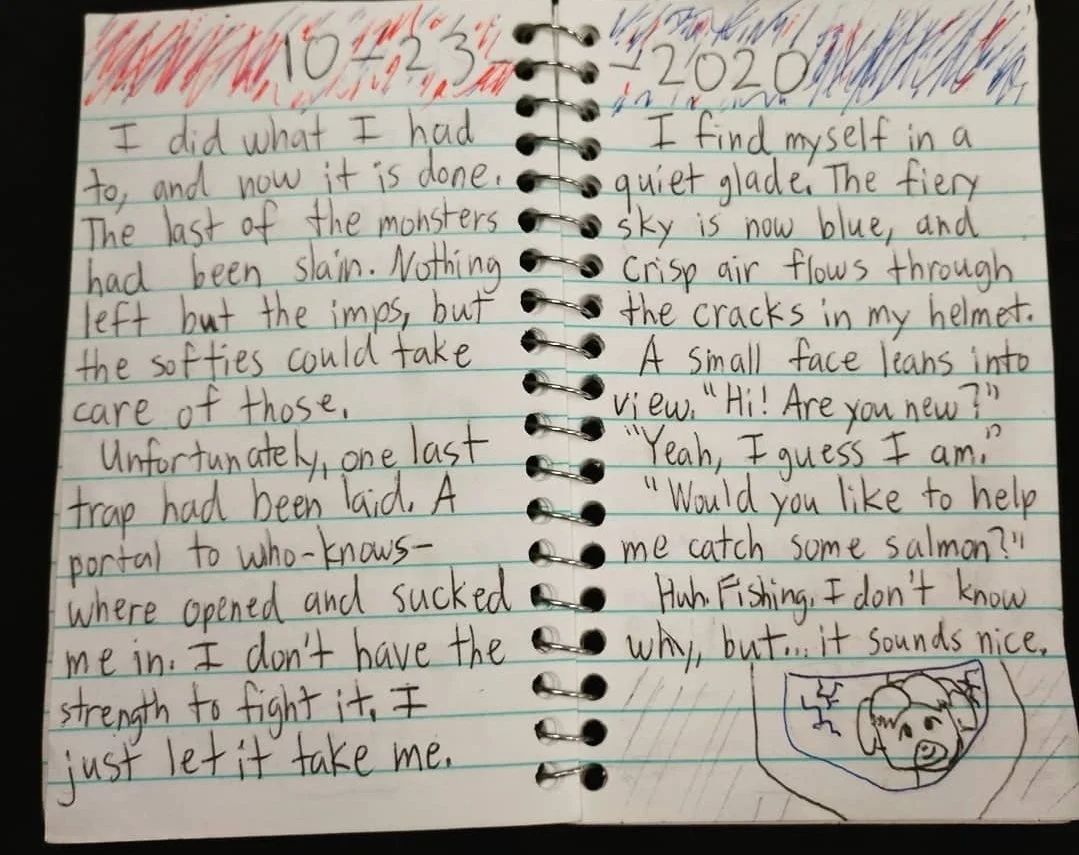 10-23-
I did what I had
to, and now it is done.
The last of the monsters
had been slain. Nothing
left but the imps, but
the softies could take
care of those.
Unfortunately, one last
trap had been laid. A
portal to who-knows-
where opened and sucked
me in. I don't have the
strength to fight it. I
just let it take me.
-2020
I find myself in a
quiet glade. The fiery
sky is now blue, and
crisp air flows through
the cracks in my helmet.
A small face leans into
view. "Hi! Are you new?"
"Yeah, I guess I am."
"Would you like to help
me catch some salmon?"
Huh. Fishing. I don't know
why, but... it sounds nice.